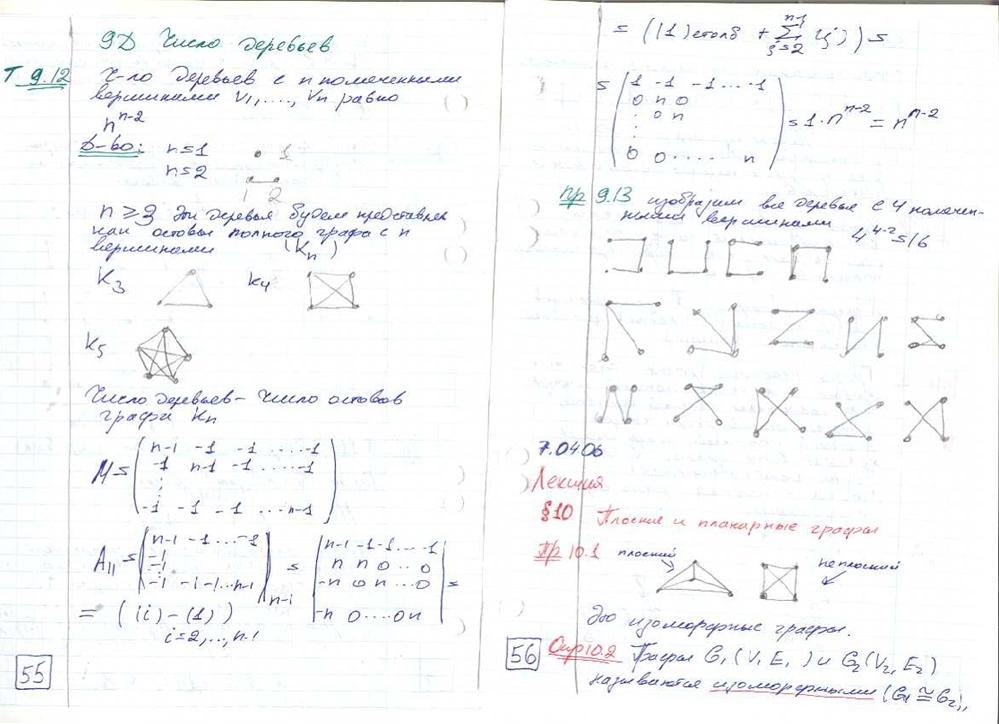 9Д Число деревьев
Т 9.12 Ч-ло деревьев с n помеченными
вершинами V1,...., Vn равно
n^{n-2}
Д-во: n=1 • 1
n=2 1 2
n ≥ 3 Эти деревья будем представлен
как остовы полного графа с n
вершинами (Kn)
K3 K4
K5
Число деревьев - число остовов
графа Kn
M = ( n-1 -1 -1 .....-1
-1 n-1 -1 .....-1
⋮
-1 -1 -1 ...n-1 )
A11 = | n-1 -1...-1
-1
-1 -1 -1...n-1 |n-1 = | n-1 -1 -1.....-1
-n n 0...0
-n 0 n...0
-n 0....0n | =
= ( (i) - (1) )
i=2,..,n-1
55
= ( (1) столб + ∑_{j=2}^{n-1} (j) ) =
= ( 1 -1 -1...-1
0 n 0
. 0 n
:
0 0..... n ) = 1·n^{n-2} = n^{n-2}
Пр 9.13 изобразим все деревья с 4 помечен-
ными вершинами 4^{4-2}=16
7.04.06
Лекция
§10 Плоские и планарные графы
Пр 10.1 плоский неплоский
Это изоморфные графы.
56 Опр 10.2 Графы G1 (V1 E1) и G2 (V2, E2)
называются изоморфными (G1 ≅ G2),